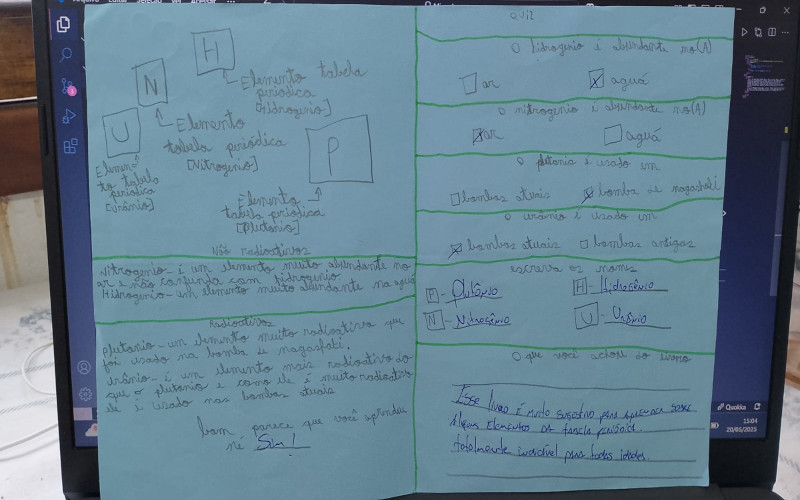 H
N
Elemento tabela
periodica
[Hidrogenio]
U
Elemento
tabela periódica
[Nitrogenio]
P
Elemen-
to tabela
periodica
[Urânio]
Elemento
tabela periódica
[Plutonio]
Não radioativos
Nitrogenio - é um elemento muito abundante no
ar e não confunda com hidrogenio
Hidrogenio - um elemento muito abundante na agua
Radioativos
plutonio - um elemento muito radioativo que
foi usado na bomba de nagashaki,
urânio - é um elemento mais radioativo do
que o plutonio e como ele é muito radioativo
ele é usado nas bombas atuais
bom parece que você aprendeu
né Sim!
Quiz
O hidrogenio é abundante no(A)
ar
aguá
O nitrogenio é abundante no(A)
ar
aguá
O plutonio é usado em
bombas atuais
bomba de nagashaki
O urânio é usado em
bombas atuais
bombas antigas
escreva os nomes
P - Plutônio
H - Hidrogênio
N - Nitrogênio
U - Urânio
O que você achou do livro
Esse livro é muito sugestivo para aprender sobre
alguns elementos da tabela periódica.
totalmente indicável para todas idades.
Quokka
15:04
20/05/2025